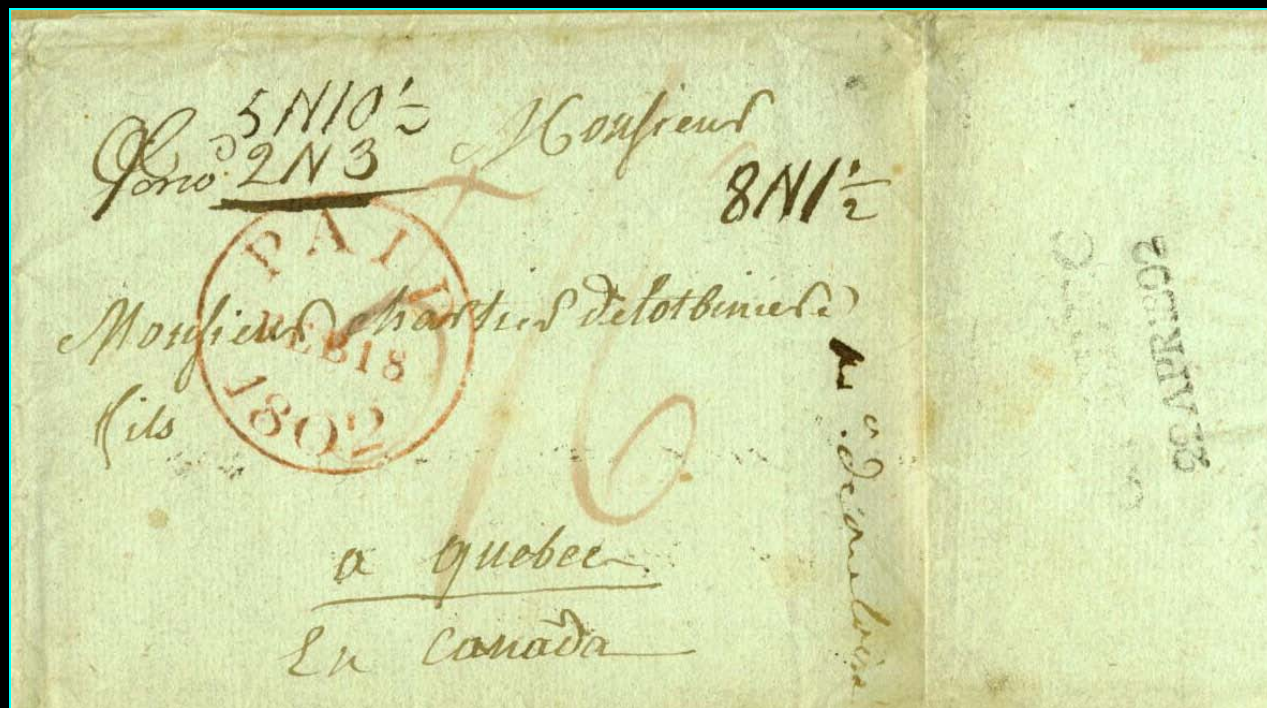 5N10½
2N3
Monsieur
8N1½
PAID
FEB 18
1802
Monsieur chartier delotbiniere
fils
16
a quebec
En Canada
22 APRE 802